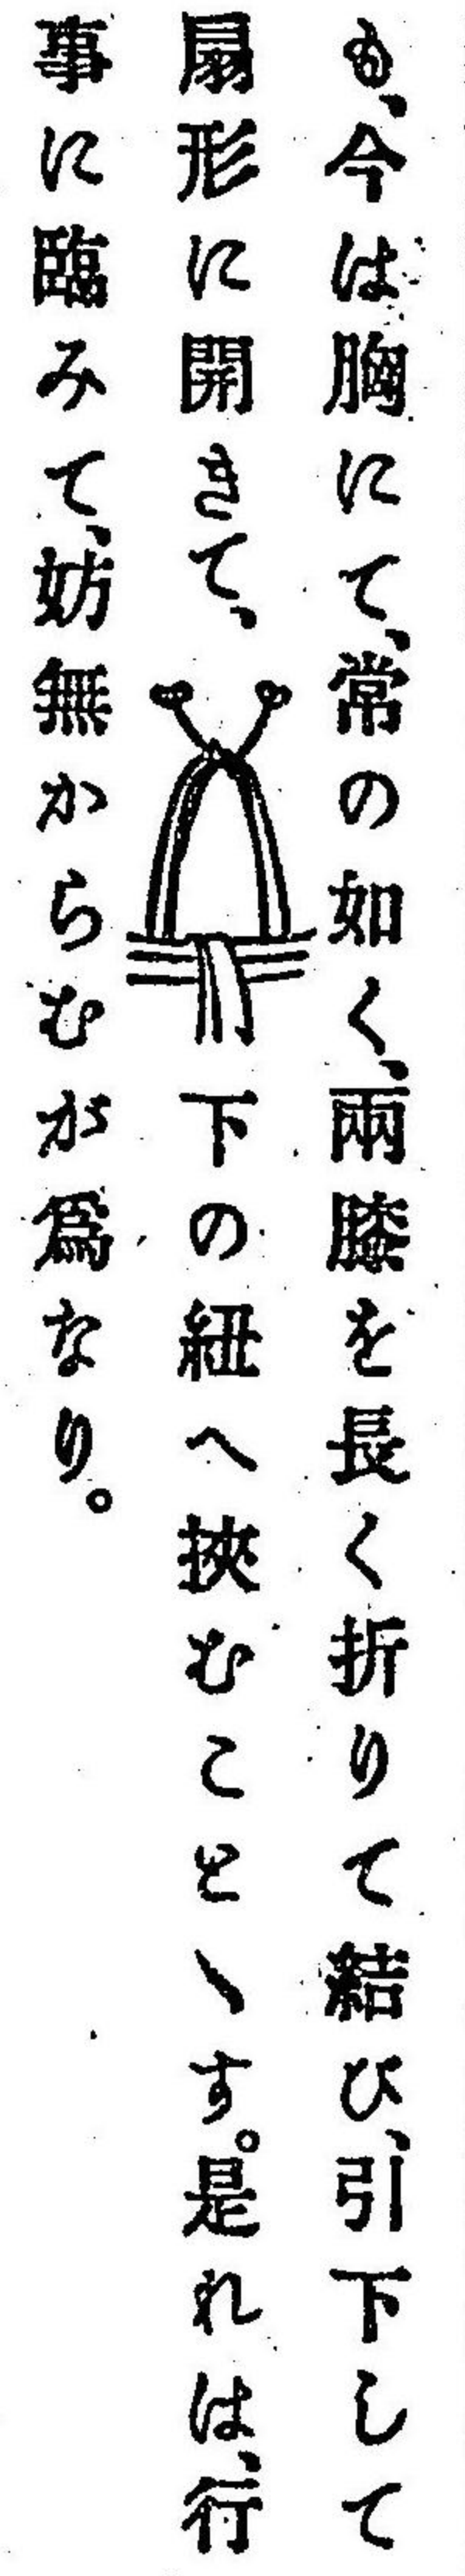 も、今は胸にて、常の如く、兩膝を長く折りて結び、引下して
扇形に開きて、下の紐へ挾むことゝす。是れは、行
事に臨みて、妨無からむが爲なり。